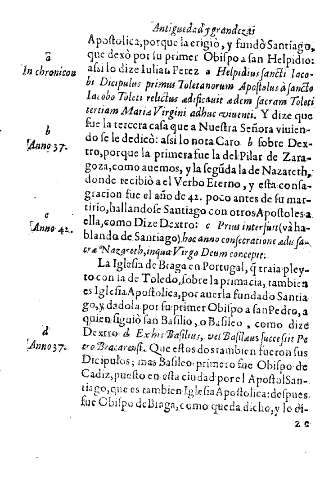 Antiguedad y grandezas
Apostolica, porque la erigio, y fundò Santiago,
que dexò por su primer Obispo a san Helpidio:
assi lo dize Iulian Perez a Helpidius sancti Iaco-
bi Dicipulus primus Toletanorum Apostolus à sancto
Iacobo Toleti relictus adificauit adem sacram Toleti
tertiam Maria Virgini adhuc viuenti. Y dize que
fue la tercera casa que a Nuestra Señora viuien-
do se le dedicò: assi lo nota Caro b sobre Dex-
tro, porque la primera fue la del Pilar de Zara-
goza, como auemos, y la segũda la de Nazareth,
donde recibiò al Verbo Eterno, y esta consa-
gracion fue el año de 42. poco antes de su mar-
tirio, hallandose Santiago con otros Apostoles a
ella, como Dize Dextro: c Prius intersunt (và ha-
blando de Santiago) hoc anno consecratione adis sa-
cræ Nazareth, in qua Virgo Deum concepit.
La Iglesia de Braga en Portugal, q̃ traia pley-
to con la de Toledo, sobre la primacia, tambien
es Iglesia Apostolica, por auerla fundado Santia
go, y dadola por su primer Obispo a san Pedro, a
quien siguiò san Basilio, o Basileo, como dize
Dextro d Exhis Basilius, vel Basilaus succesit Pe
tro Bracarensi. Que estos dos tambien fueron sus
Dicipulos; mas Basileo primero fue Obispo de
Cadiz, puesto en esta ciudad por el Apostol San-
tiago, que es tambien Iglesia Apostolica: despues
fue Obispo de Braga, como queda dicho, y lo di-
ze
a
In chronicon
b
Anno 37.
c
Anno 42.
d
Anno 37.